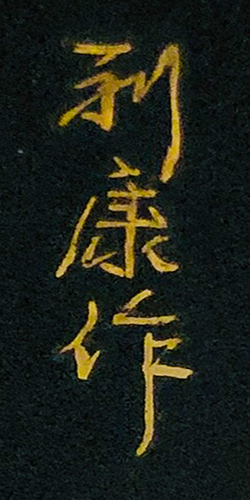 利康作